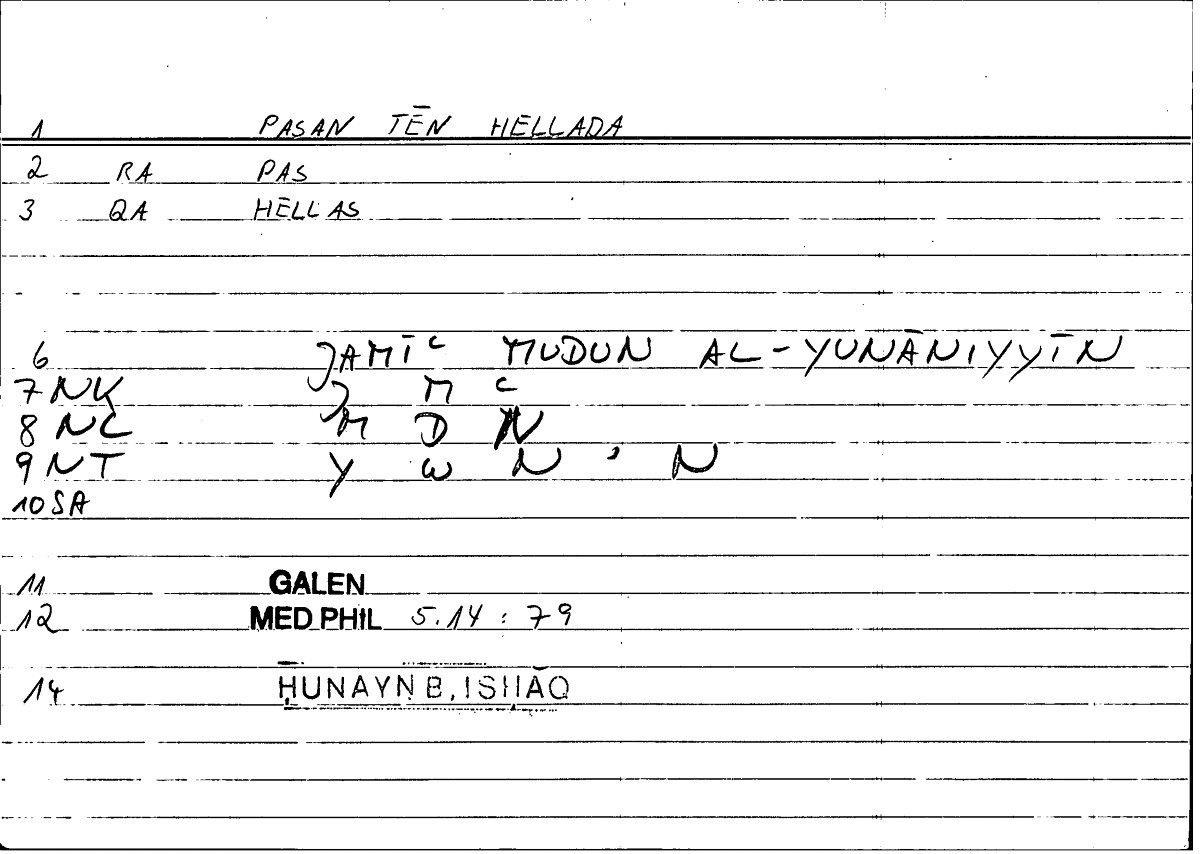 1 PASAN TĒN HELLADA
2 RA PAS
3 QA HELLAS
6 JAMĪʿ MUDUN AL-YUNĀNIYYĪN
7 NK J M ʿ
8 NC M D N
9 NT Y W N ʾ N
10 SA
11 GALEN
12 MED PHIL 5.14 : 79
14 ḤUNAYN B. ISḤĀQ